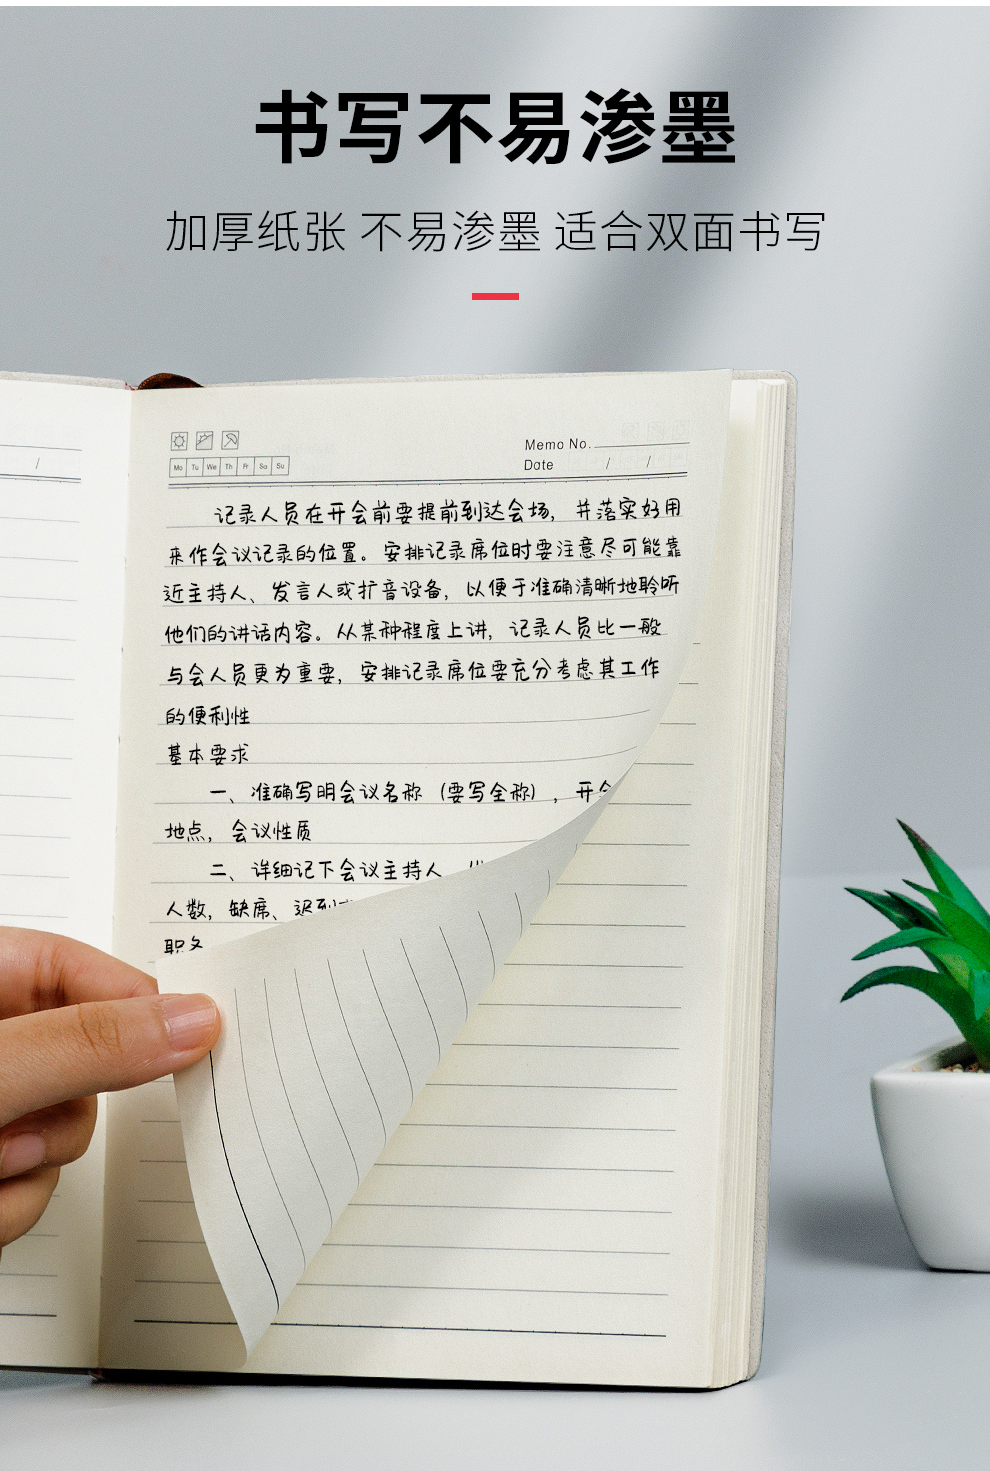 书写不易渗墨
加厚纸张 不易渗墨 适合双面书写
Memo No.
Mo Tu We Th Fr Sa Su
Date / /
/
记录人员在开会前要提前到达会场，并落实好用
来作会议记录的位置。安排记录席位时要注意尽可能靠
近主持人、发言人或扩音设备，以便于准确清晰地聆听
他们的讲话内容。从某种程度上讲，记录人员比一般
与会人员更为重要，安排记录席位要充分考虑其工作
的便利性
基本要求
一、准确写明会议名称（要写全称），开会
地点，会议性质
二、详细记下会议主持人、
人数，缺席、迟到
职务